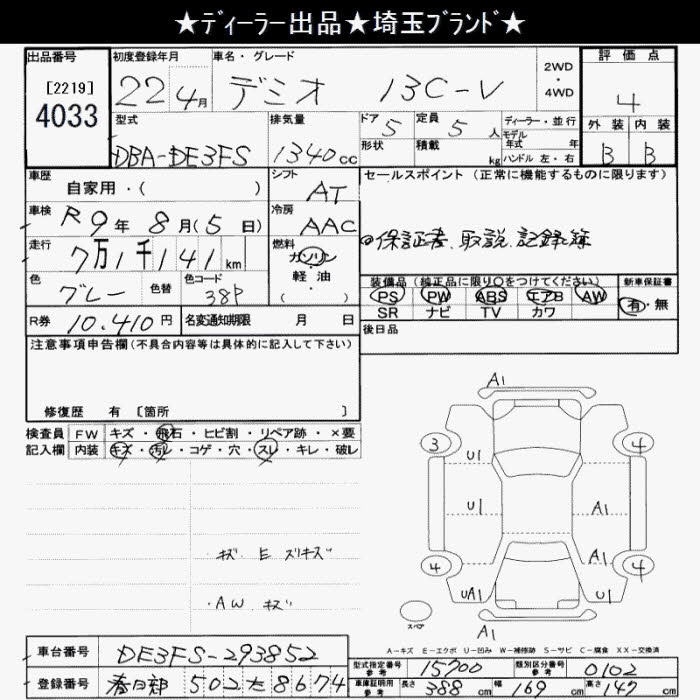 ★ディーラー出品★埼玉ブランド★
出品番号 初度登録年月 車名・グレード 2WD・4WD 評価点
[2219] 4033 22 4月 デミオ 13C-V 4
型式 排気量 ドア 定員 ディーラー・並行 外装 内装
DBA-DE3FS 1340cc 5 5人 モデル年式 年 B B
形状 積載 kg ハンドル 左・右
車歴 自家用・( ) シフト AT セールスポイント (正常に機能するものに限ります)
車検 R9年8月(5日) 冷房 AAC
保証書 取説 記録簿
走行 7万1千141km 燃料 ガソリン・軽油・( )
色 グレー 色替 色コード 38P 装備品(純正品に限り〇をつけてください) 新車保証書
PS PW ABS エアB AW 有・無
SR ナビ TV カワ
R券 10,410円 名変通知期限 月 日 後日品
注意事項申告欄(不具合内容等は具体的に記入して下さい)
修復歴 有 [箇所 ]
検査員 FW キズ・飛石・ヒビ割・リペア跡・×要
記入欄 内装 キズ・汚レ・コゲ・穴・スレ・キレ・破レ
A1
3 4
U1
U1 A1
A1
4 4
UA1 U1
A1
スペア
キズ E ズリキズ
・AW キズ
A-キズ E-エクボ U-凹み W-補修跡 S-サビ C-腐食 XX-交換済
車台番号 DE3FS-293852 型式指定番号 参考 15700 類別区分番号 参考 0102
登録番号 春日部 502 た 8674 車庫証明用 参考 長さ 388cm 幅 169cm 高さ 147cm